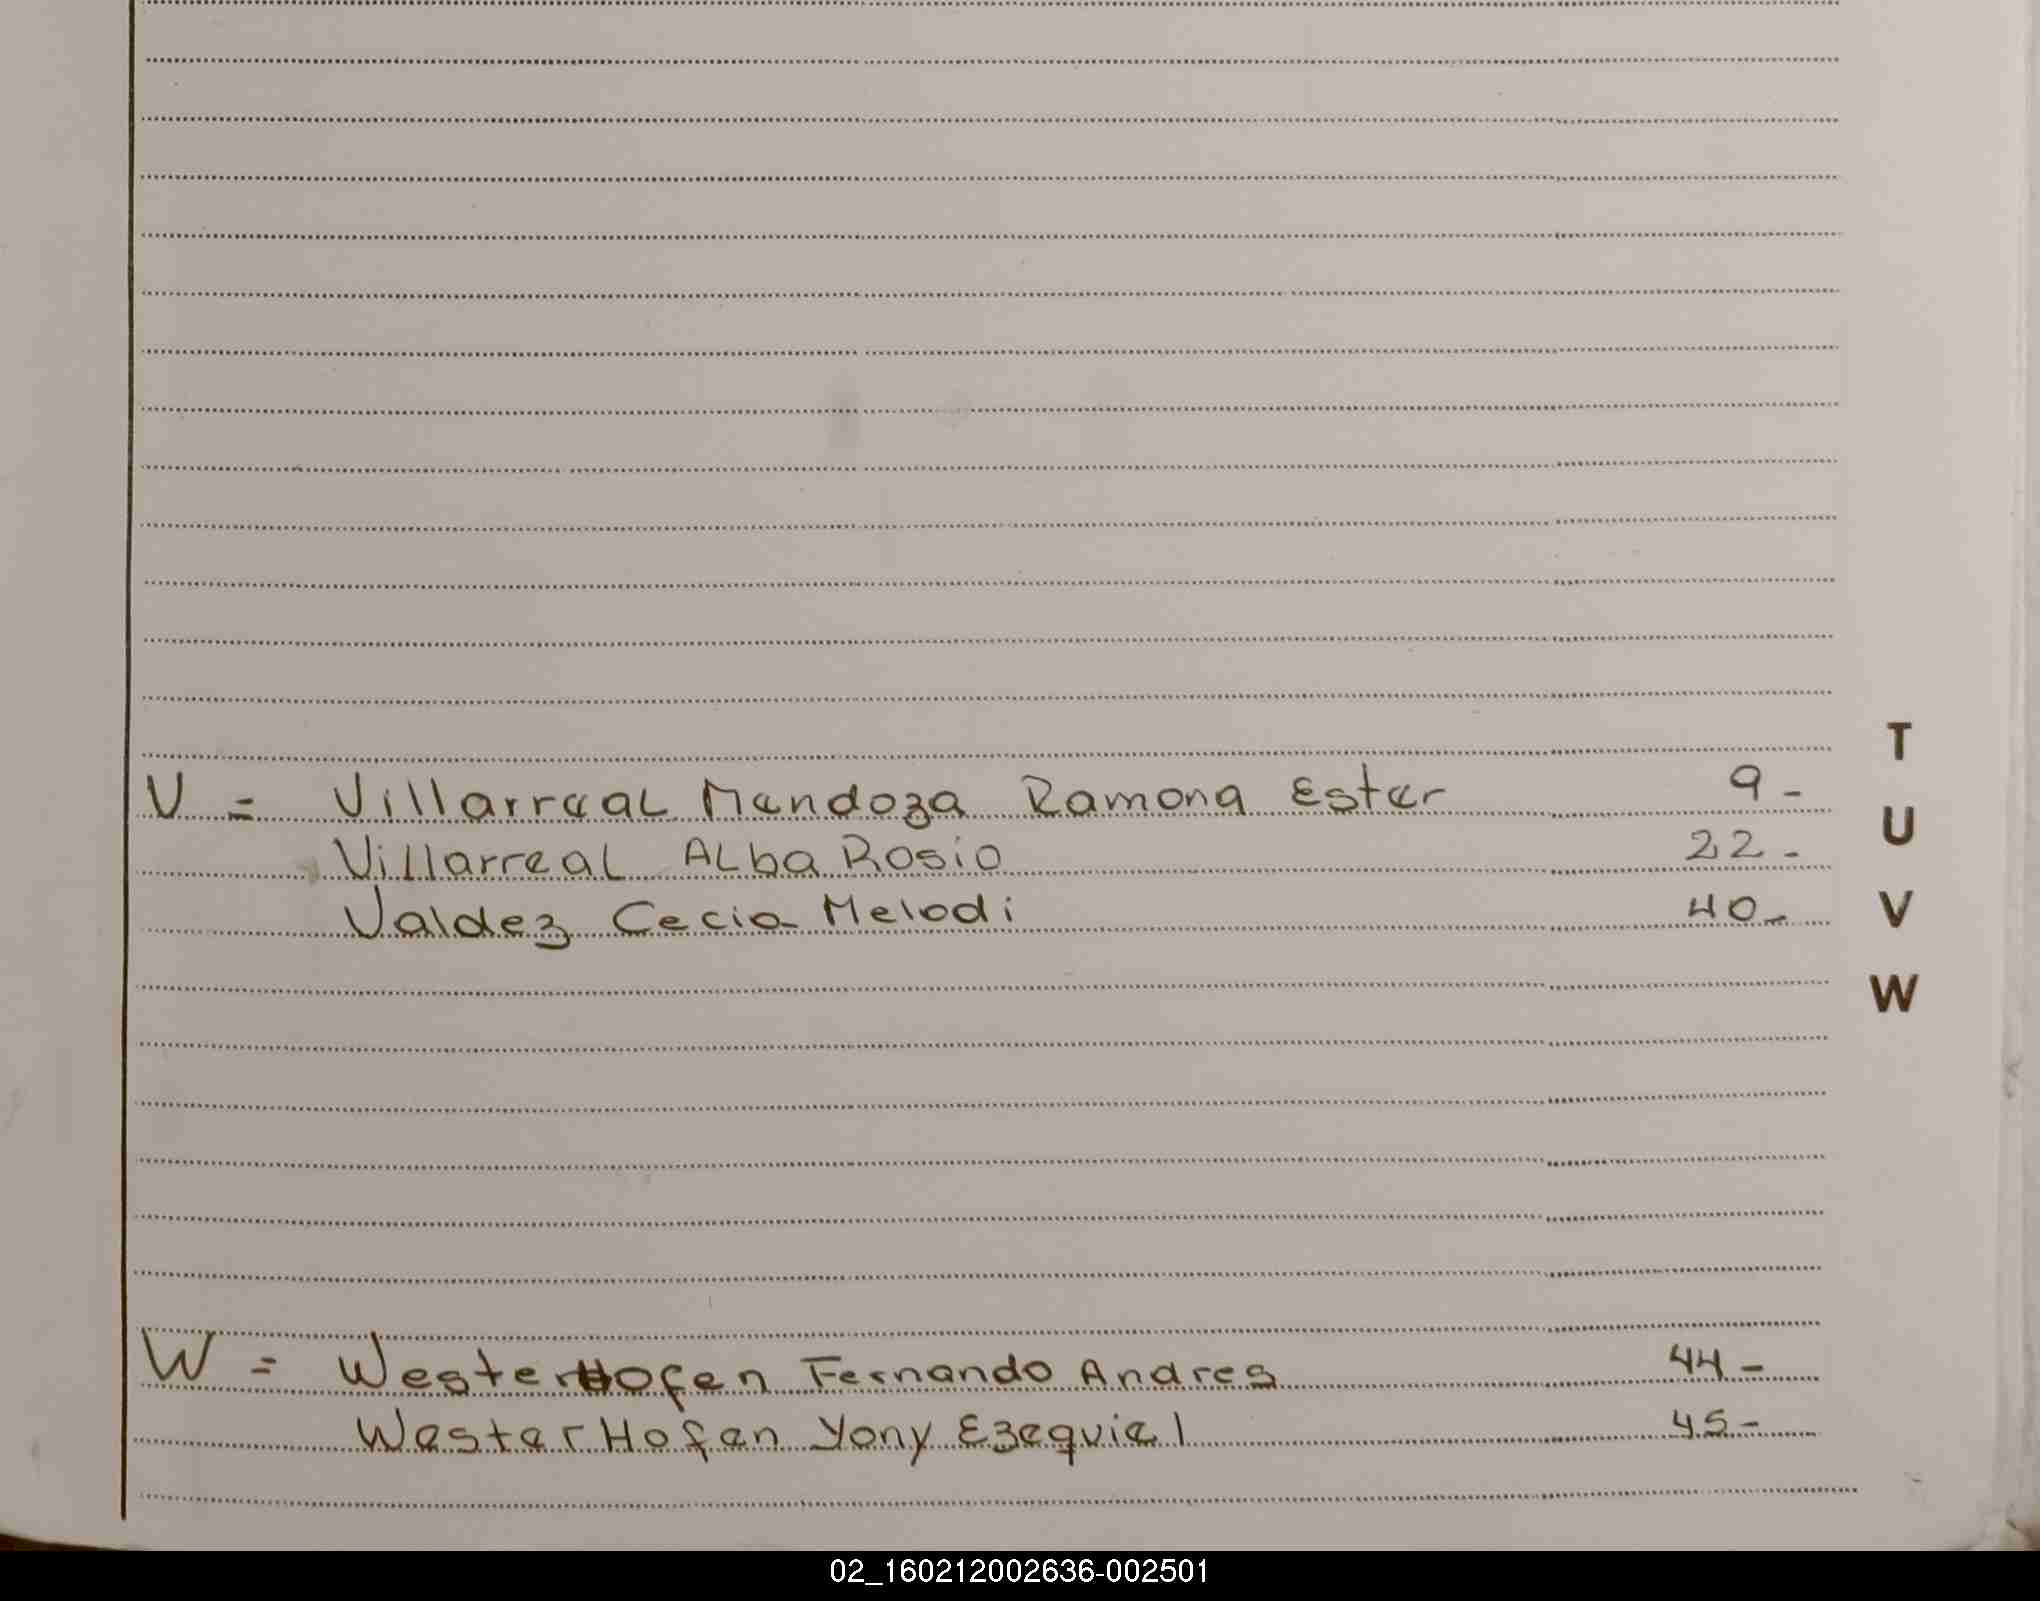 T
V = Villarreal Mendoza Ramona Ester 9-
U
Villarreal ALba Rosio 22-
Valdez Cecia Melodi 40-
V
W
W = WesterHofen Fernando Andres 44-
WesterHofen Yony Ezequiel 45-
02_160212002636-002501